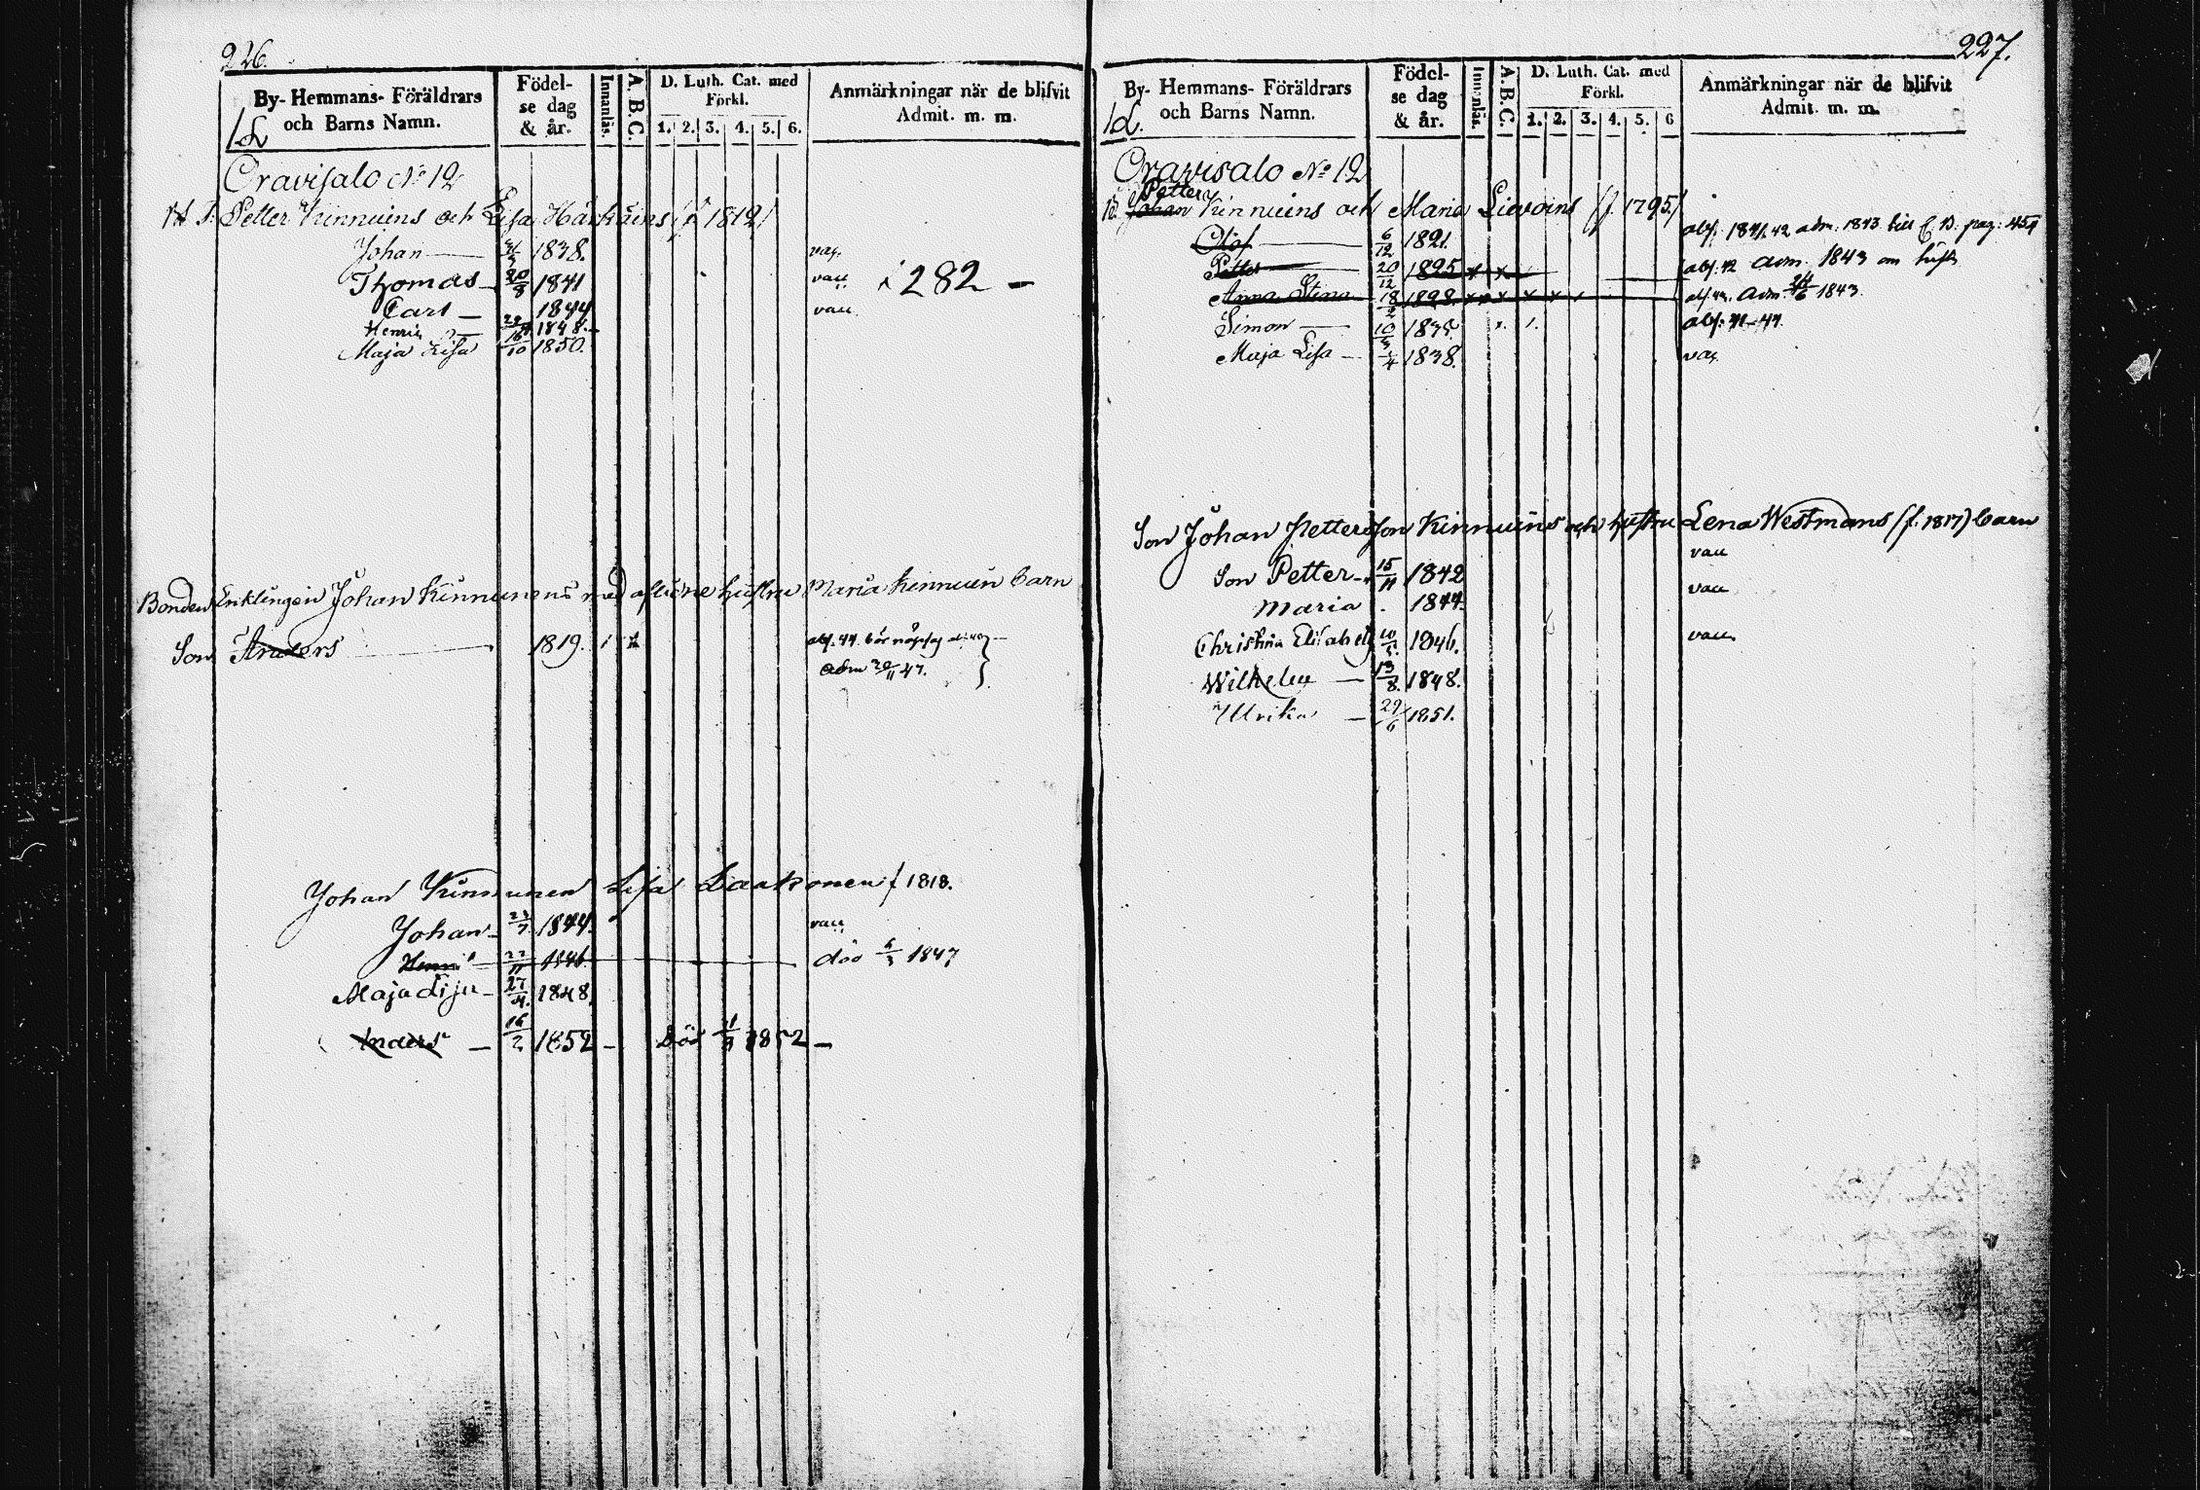 226.
By- Hemmans- Föräldrars och Barns Namn.
Födelse dag & år.
Innanläs.
A.B.C.
D. Luth. Cat. med Förkl.
1. 2. 3. 4. 5. 6.
Anmärkningar när de blifvit Admit. m. m.
Oravisalo No 12
Petter Kinnuins och Lisa Härkäins (f. 1812)
Johan 1838. vac.
Thomas 20/8 1841 vacc. 282 —
Carl 1844 vacc.
Henric 1848.
Maja Lisa 16/10 1850.
Bonden Johan Kinnunens med hustru Maria Kinnuin barn
Son Anders 1819.
adm 20/11 47.
Johan Kinnunen Lisa Laakonen f 1818.
Johan 1844. vacc.
22/11 1846. död 1847
Maja Lisa 27/4. 1848.
Anders 16/2 1852 — Död 1852 —
227.
By- Hemmans- Föräldrars och Barns Namn.
Födelse dag & år.
Innanläs.
A.B.C.
D. Luth. Cat. med Förkl.
1. 2. 3. 4. 5. 6
Anmärkningar när de blifvit Admit. m. m.
Oravisalo No 12
Petter
B. Johan Kinnuins och Maria Lievoins (f. 1795)
Olof 6/12 1821. adm. 1843
Petter 20/12 1825 adm. 1843
Anna Stina 18/2 1828. adm. 1843.
Simon 1835.
Maja Lisa 1838. vac.
Son Johan Pettersson Kinnuins och hustru Lena Westmans (f. 1817) barn
vacc
Son Petter 15/11 1842
vacc
Maria 1844.
Christina Elisabeth 10/5. 1846. vacc.
Wilhelm — 13/8. 1848.
Ulrika — 29/6 1851.